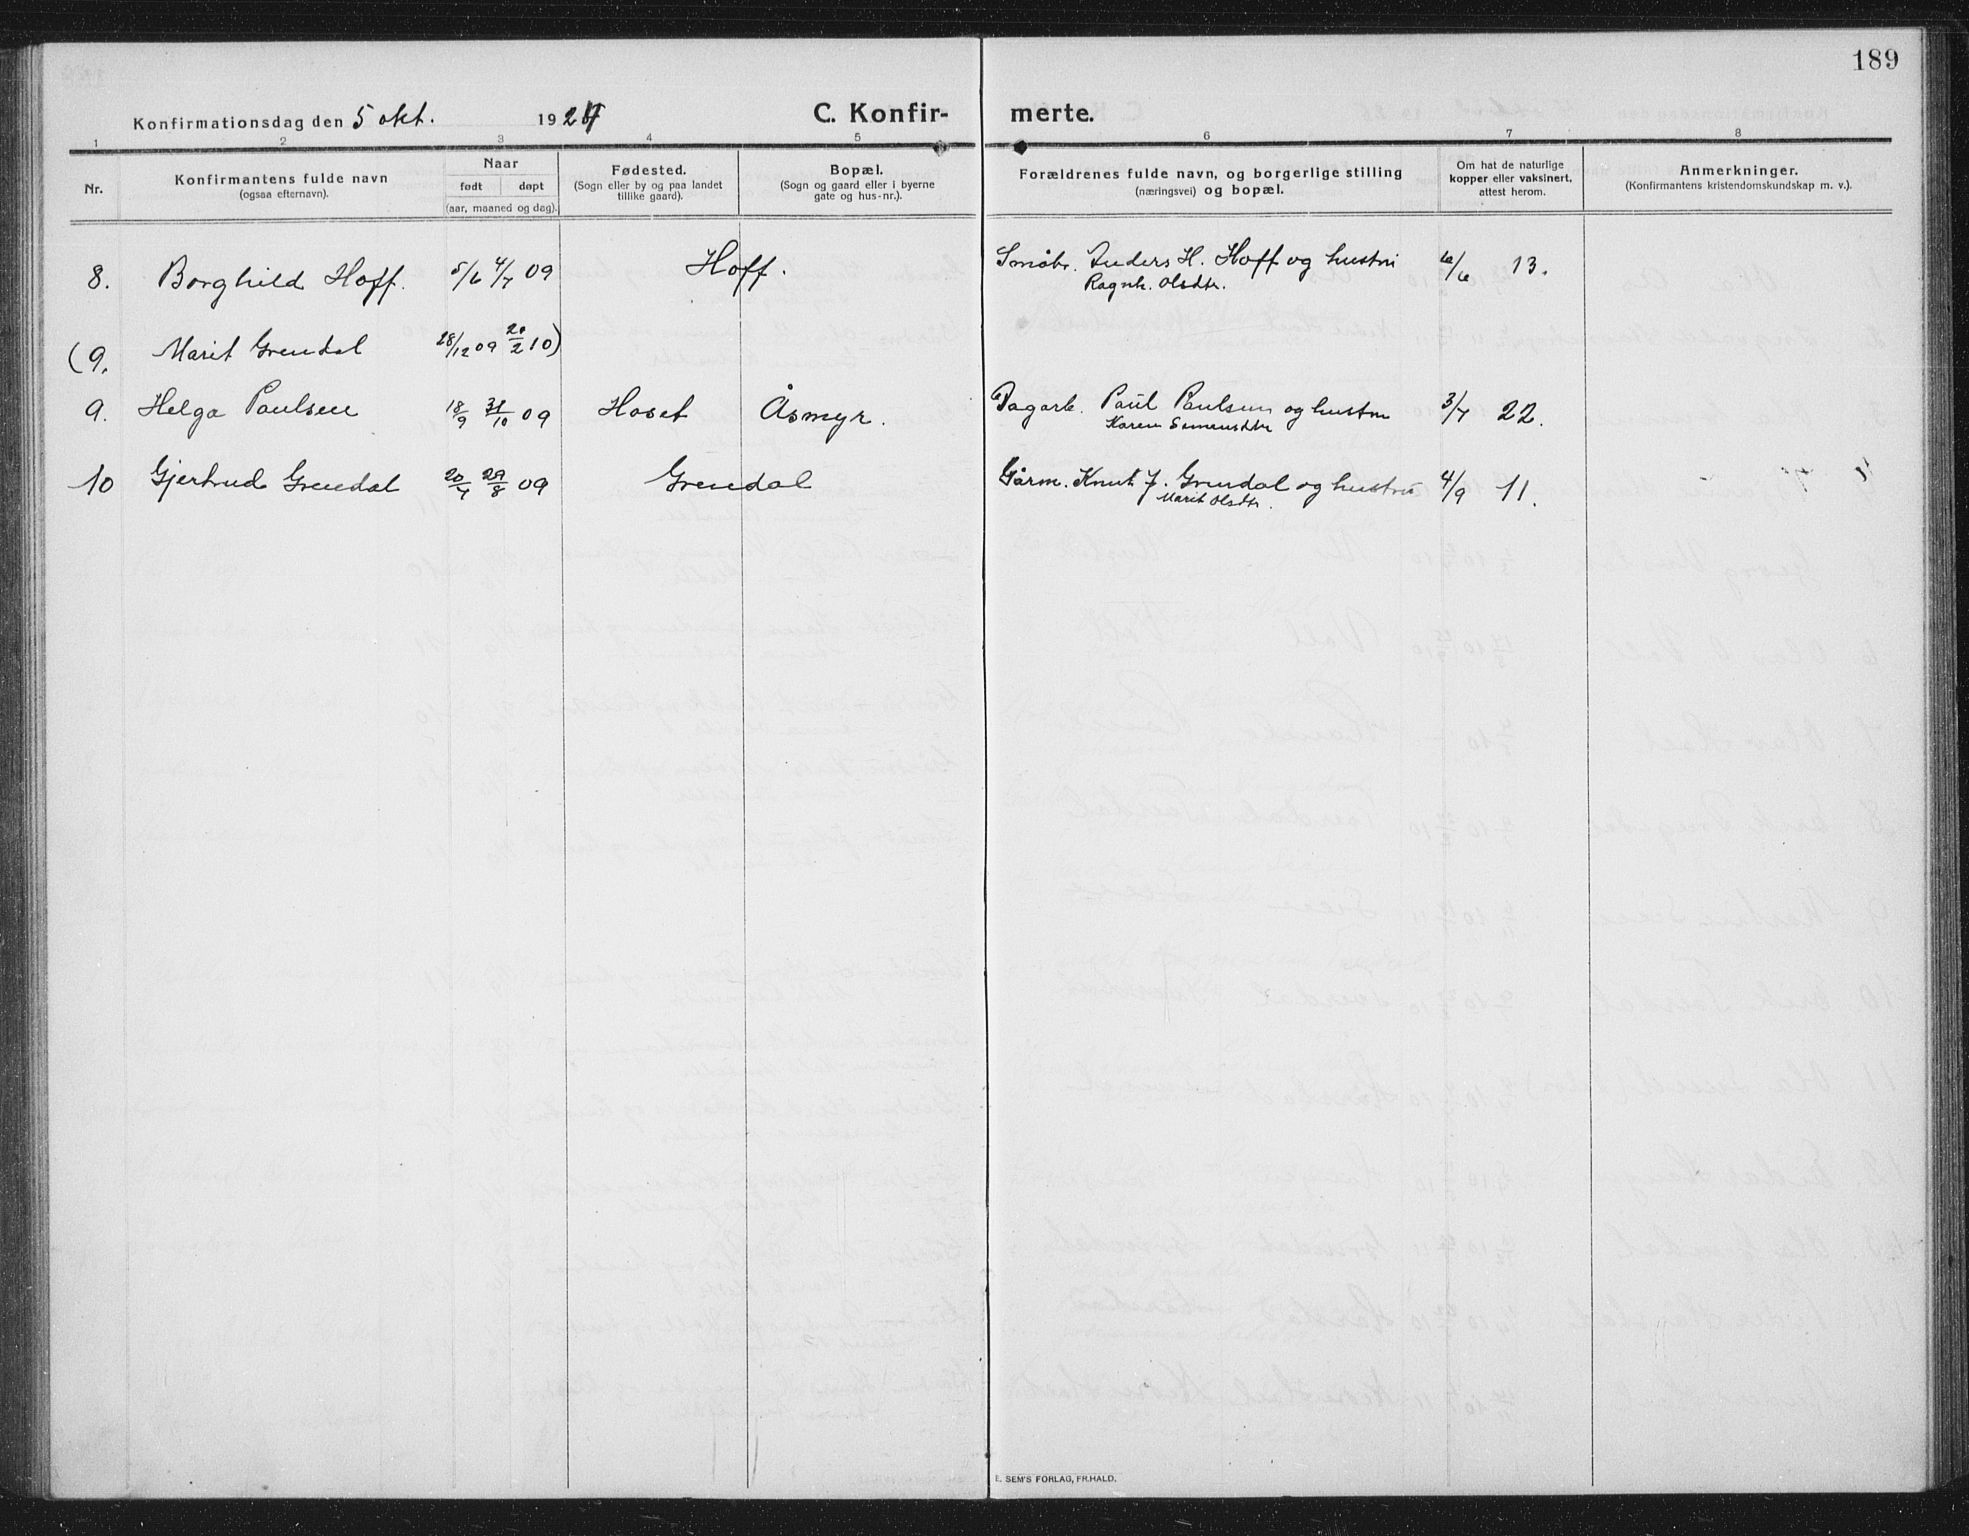 189
Konfirmationsdag den 5 okt. 1924
C. Konfir- merte.
1 2 3 4 5 6 7 8
Nr.
Konfirmantens fulde navn
(ogsaa efternavn).
Naar
født døpt
(aar, maaned og dag).
Fødested.
(Sogn eller by og paa landet
tillike gaard).
Bopæl.
(Sogn og gaard eller i byerne
gate og hus-nr.).
Forældrenes fulde navn, og borgerlige stilling
(næringsvei) og bopæl.
Om hat de naturlige
kopper eller vaksinert,
attest herom.
Anmerkninger.
(Konfirmantens kristendomskundskap m. v.).
8. Borghild Hoff. 5/6 4/7 09 Hoff. Småbr. Anders H. Hoff og hustru 13.
Ragnh. Olsdtr.
(9. Marit Grendal 28/12 09 20/2 10)
9. Helga Paulsen 18/9 31/10 09 Hoset Åsmyr. Dagarb. Paul Paulsen og hustru 3/7 22.
Karen Simensdtr
10 Gjertrud Grendal 20/7 29/8 09 Grendal Gårm. Knut J. Grendal og hustru 4/9 11.
Marit Olsdtr.
E. SEM'S FORLAG, FR.HALD.